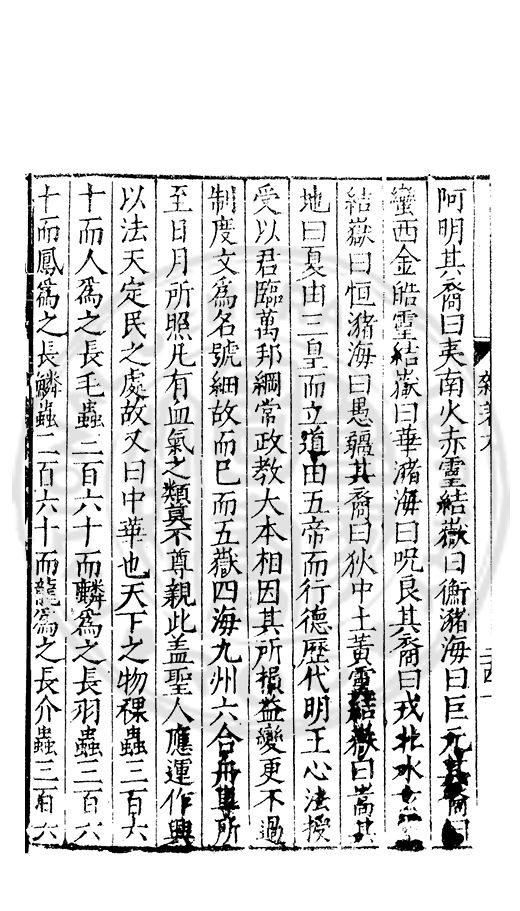 阿明其裔曰夷南火赤靈結嶽曰衡瀦海曰巨元其裔曰
蠻西金皓靈結嶽曰華瀦海曰呪良其裔曰戎北水
結嶽曰恒瀦海曰愚疆其裔曰狄中土黃靈結嶽曰嵩其
地曰夏由三皇而立道由五帝而行德歷代明王心法授
受以君臨萬邦綱常政教大本相因其所損益變更不過
制度文爲名號細故而已而五嶽四海九州六合冊具所
至日月所照凡有血氣之類莫不尊親此盖聖人應運作興
以法天定民之處故又曰中華也天下之物裸蟲三百六
十而人爲之長毛蟲二百六十而麟爲之長羽蟲三百六
十而鳳爲之長鱗蟲二百六十而龍爲之長介蟲三百六